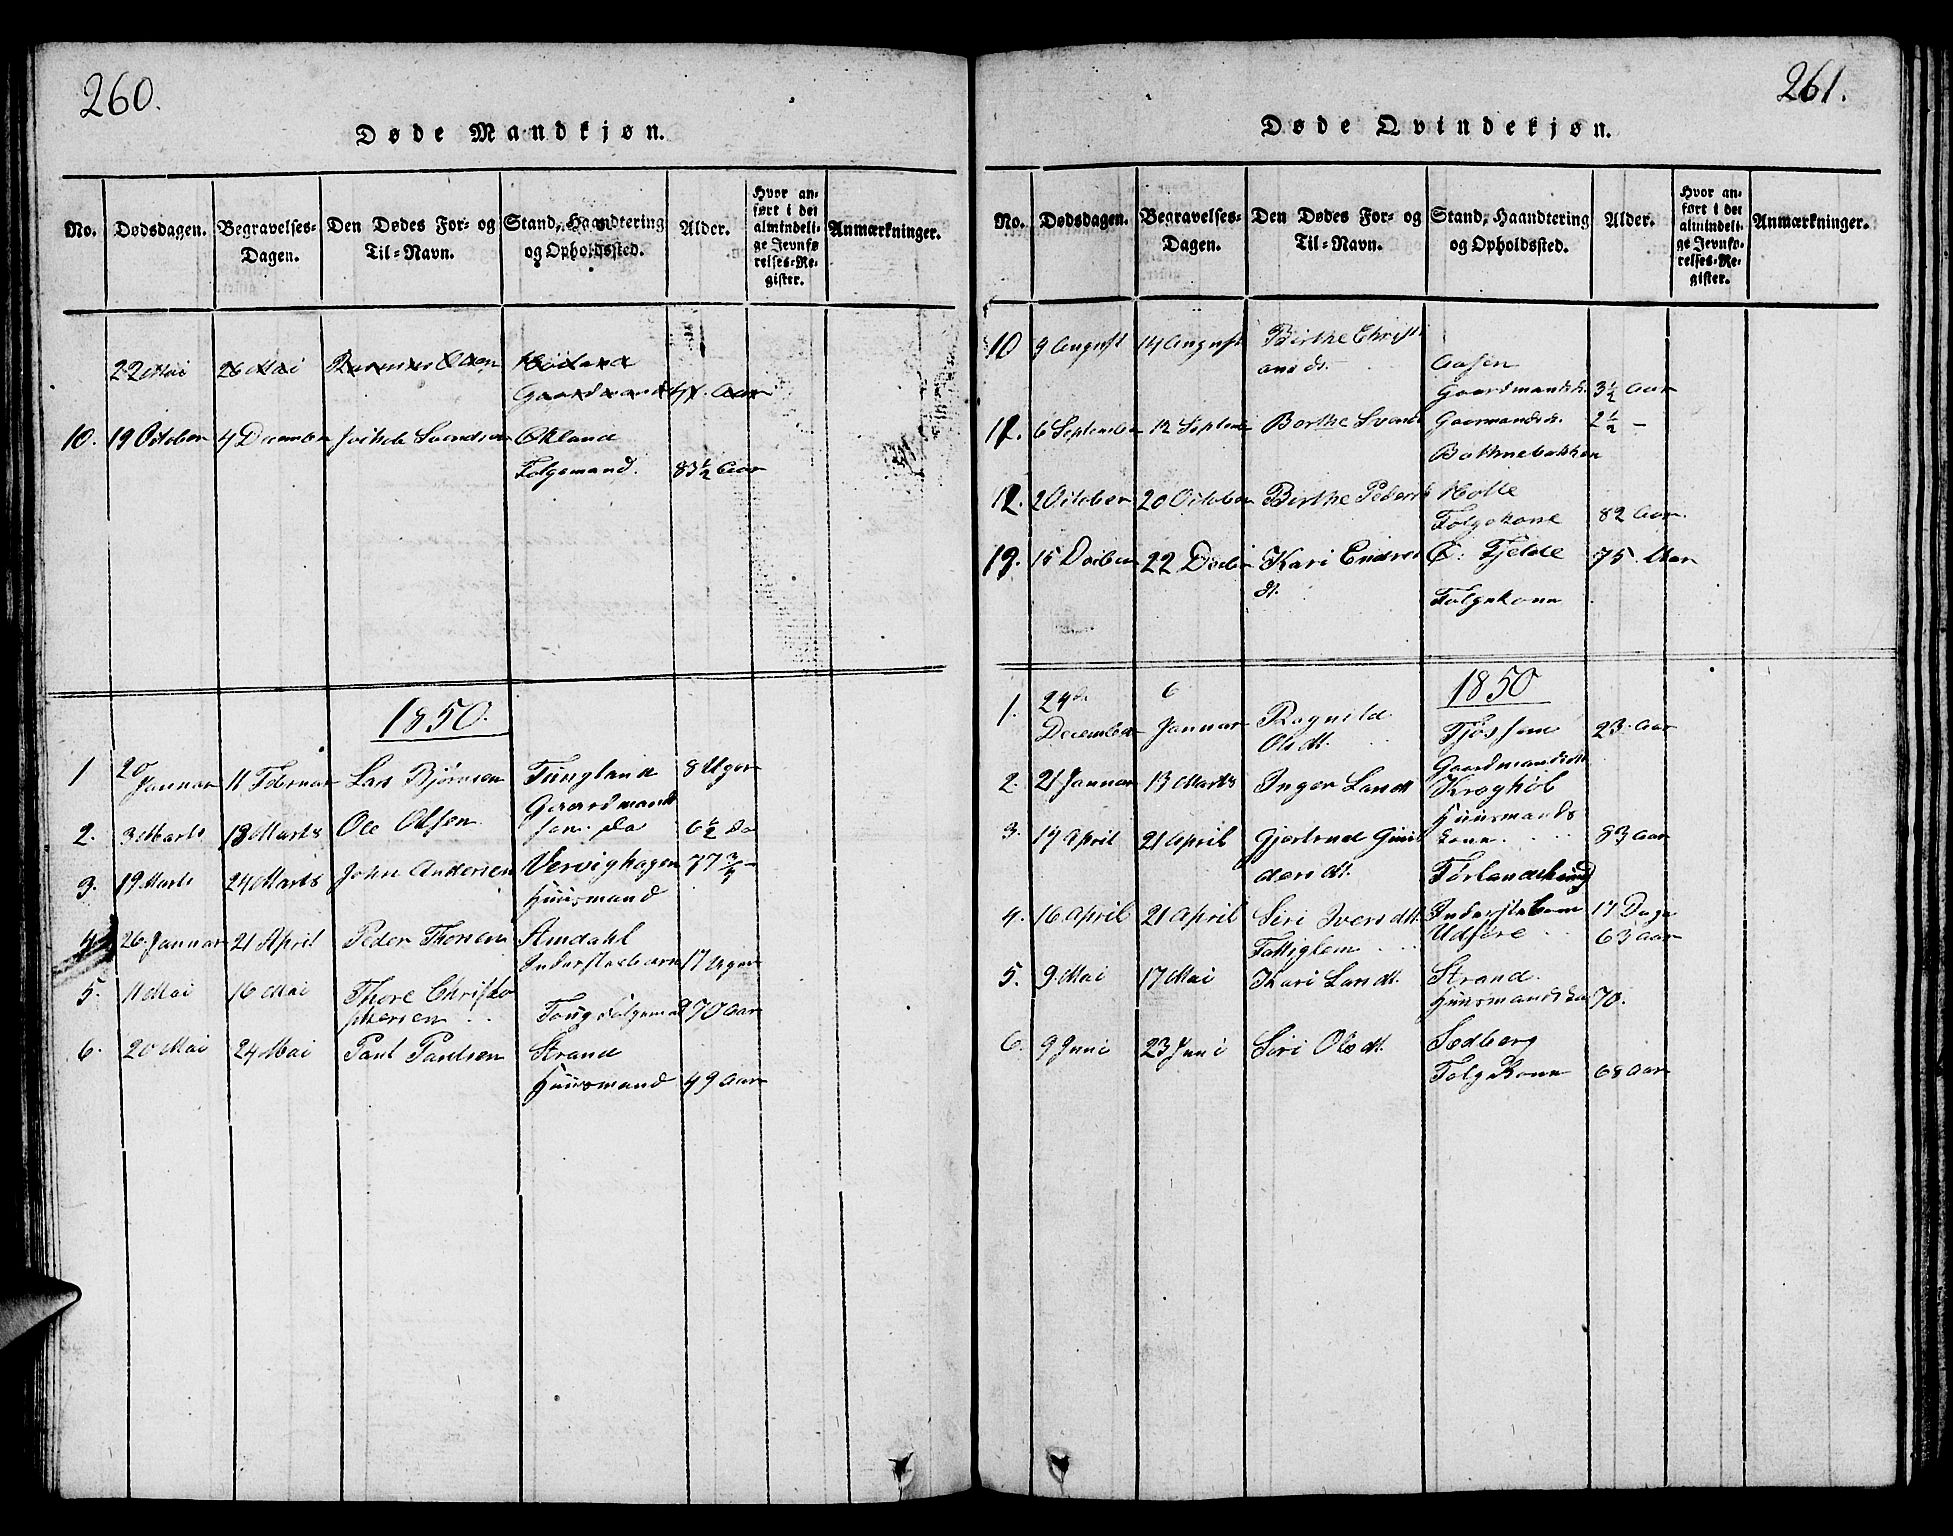 260.
Døde Mandkjøn.
No. Dødsdagen. Begravelses-Dagen. Den Dødes For- og Til-Navn. Stand, Haandtering og Opholdssted. Alder. Hvor anført i det almindelige Jevnførelses-Register. Anmærkninger.
22 Mai 26 Mai Olsen
Gaardmand Aar
10. 19 October 4 December Svendsen Økland
Folgemand. 83½ Aar
1850.
1 20 Januar 11 Februar Lars Bjørnsen Tungland 8 Uger
Gaardmands
2. 3 Marts 13 Marts Ole Olsen søn. do 6½ do
3. 19 Marts 24 Marts John Andersen Vervighagen 77 ¾ –
Huusmand
4. 26 Januar 21 April Peder Thorsen Amdahl
Inderstesbarn 17 Uger
5. 11 Mai 16 Mai Thore Christo
phersen Toug Folgemand 70 Aar
6. 20 Mai 24 Mai Paul Paulsen Strand
Huusmand 49 Aar
261.
Døde Qvindekjøn.
No. Dødsdagen. Begravelses-Dagen. Den Dødes For- og Til-Navn. Stand, Haandtering og Opholdssted. Alder. Hvor anført i det almindelige Jevnførelses-Register. Anmærkninger.
10 9 August 14 August Birthe Christi
ansdt. Aasen
Gaardmandsk. 3½ Aar
11. 6 September 12 Septem Berthe Svends Gaarmandsd. 2½ –
Bothnebakken
12. 2 October 20 October Birthe Peders Holle
Folgekone 82 Aar.
13. 15 Decber 22 Decbr Kari Endres Ø. Fjelde 75. Aar
dt. Folgekone
1850
1. 24de 6 Ragnild
December Januar Olsdt. Tjøssem 23. Aar
Gaardmandsdt
2. 21 Januar 13 Marts Inger Larsdt Kroghøl
Huusmands
3. 14 April 21 April Gjertrud Gun kone 83 Aar
dersdt. Førlandskaug
4. 16 April 21 April Siri Iversdt. Inderstebarn 17 Dage
Fattiglem Udføre 63 Aar
5. 9 Mai 17 Mai Kari Larsdt. Strand.
Huusmandsko 70.
6. 9 Juni 23 Juni Siri Olsdt. Sedberg
Folgekone 68 Aar